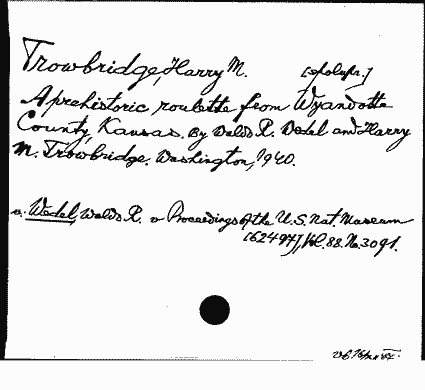 Trowbridge, Harry M.
A prehistoric roulette from Wyandotte
County, Kansas. By Waldo R. Wedel and Harry
M. Trowbridge. Washington, 1940.
v. Wedel, Waldo R. v Proceedings of the U.S. Nat. Museum
[62497], Vol. 88. No. 3091.